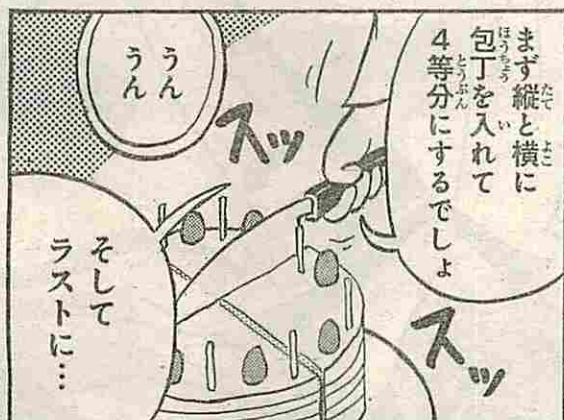 まず縦と横に
包丁を入れて
4等分にするでしょ
スッ
うん
うん
スッ
そして
ラストに…